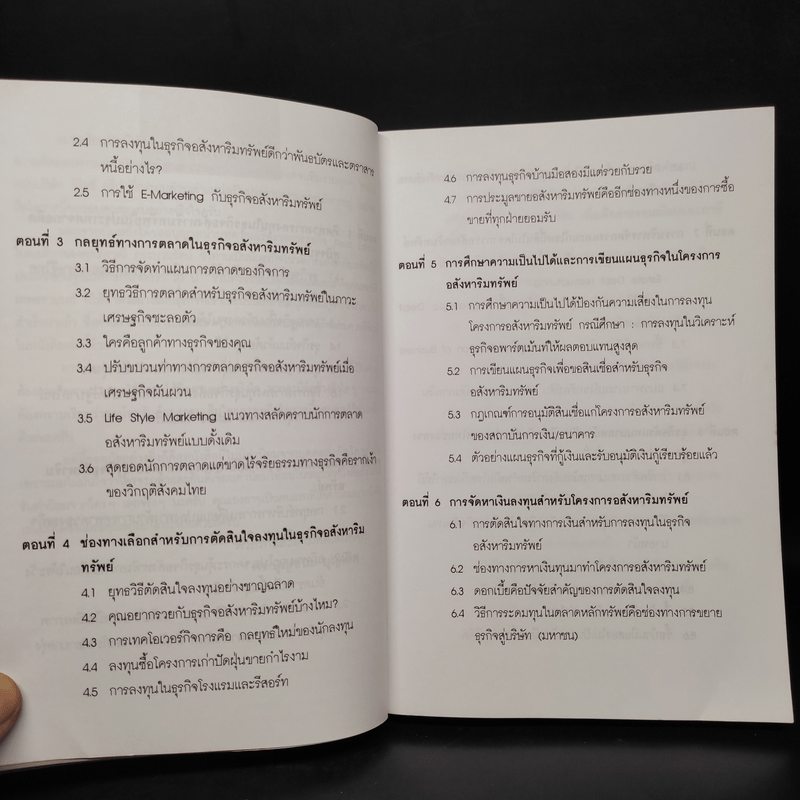 2.4 การลงทุนในธุรกิจอสังหาริมทรัพย์ดีกว่าพันธบัตรและตราสาร
หนี้อย่างไร?
2.5 การใช้ E-Marketing กับธุรกิจอสังหาริมทรัพย์
ตอนที่ 3 กลยุทธ์ทางการตลาดในธุรกิจอสังหาริมทรัพย์
3.1 วิธีการจัดทำแผนการตลาดของกิจการ
3.2 ยุทธวิธีการตลาดสำหรับธุรกิจอสังหาริมทรัพย์ในภาวะ
เศรษฐกิจชะลอตัว
3.3 ใครคือลูกค้าทางธุรกิจของคุณ
3.4 ปรับขบวนท่าทางการตลาดธุรกิจอสังหาริมทรัพย์เมื่อ
เศรษฐกิจผันผวน
3.5 Life Style Marketing แนวทางสลัดคราบนักการตลาด
อสังหาริมทรัพย์แบบดั้งเดิม
3.6 สุดยอดนักการตลาดแต่ขาดไร้จริยธรรมทางธุรกิจคือรากเง้า
ของวิกฤติสังคมไทย
ตอนที่ 4 ช่องทางเลือกสำหรับการตัดสินใจลงทุนในธุรกิจอสังหาริม
ทรัพย์
4.1 ยุทธวิธีตัดสินใจลงทุนอย่างชาญฉลาด
4.2 คุณอยากรวยกับธุรกิจอสังหาริมทรัพย์บ้างไหม?
4.3 การเทคโอเวอร์กิจการคือ กลยุทธ์ใหม่ของนักลงทุน
4.4 ลงทุนซื้อโครงการเก่าปัดฝุ่นขายกำไรงาม
4.5 การลงทุนในธุรกิจโรงแรมและรีสอร์ท
4.6 การลงทุนธุรกิจบ้านมือสองมีแต่รวยกับรวย
4.7 การประมูลขายอสังหาริมทรัพย์คืออีกช่องทางหนึ่งของการซื้อ
ขายที่ทุกฝ่ายยอมรับ
ตอนที่ 5 การศึกษาความเป็นไปได้และการเขียนแผนธุรกิจในโครงการ
อสังหาริมทรัพย์
5.1 การศึกษาความเป็นไปได้ป้องกันความเสี่ยงในการลงทุน
โครงการอสังหาริมทรัพย์ กรณีศึกษา : การลงทุนในวิเคราะห์
ธุรกิจอพาร์ตเม้นท์ให้ผลตอบแทนสูงสุด
5.2 การเขียนแผนธุรกิจเพื่อขอสินเชื่อสำหรับธุรกิจ
อสังหาริมทรัพย์
5.3 กฎเกณฑ์การอนุมัติสินเชื่อแก่โครงการอสังหาริมทรัพย์
ของสถาบันการเงิน/ธนาคาร
5.4 ตัวอย่างแผนธุรกิจที่กู้เงินและรับอนุมัติเงินกู้เรียบร้อยแล้ว
ตอนที่ 6 การจัดหาเงินลงทุนสำหรับโครงการอสังหาริมทรัพย์
6.1 การตัดสินใจทางการเงินสำหรับการลงทุนในธุรกิจ
อสังหาริมทรัพย์
6.2 ช่องทางการหาเงินทุนมาทำโครงการอสังหาริมทรัพย์
6.3 ดอกเบี้ยคือปัจจัยสำคัญของการตัดสินใจลงทุน
6.4 วิธีการระดมทุนในตลาดหลักทรัพย์คือช่องทางการขยาย
ธุรกิจสู่บริษัท (มหาชน)